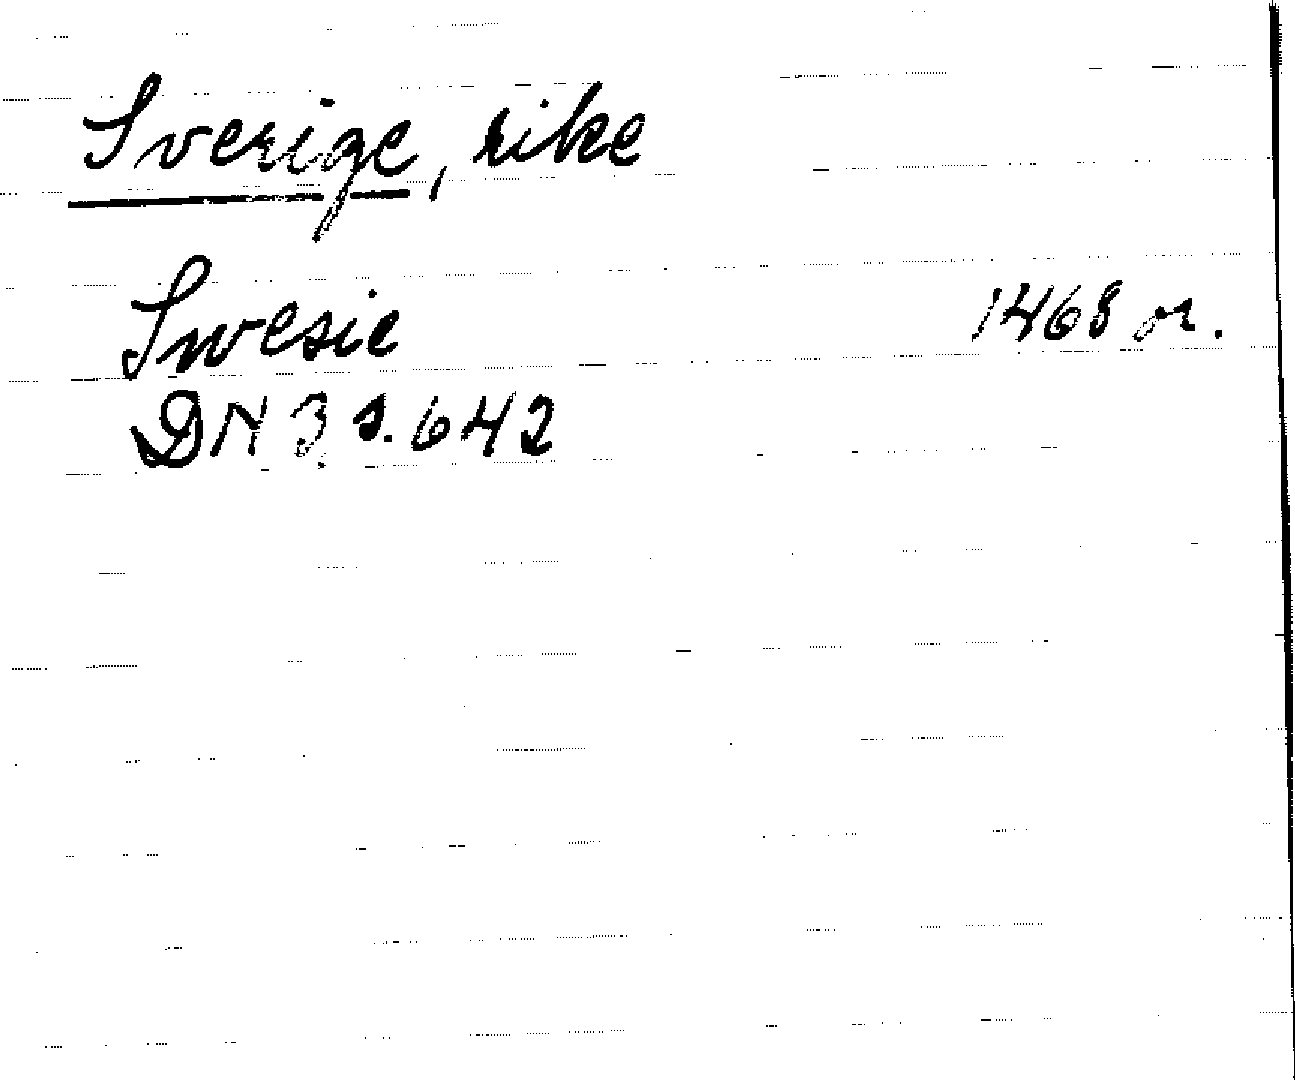 Sverige, rike
Swesie 1468 or.
DN 3 s. 642